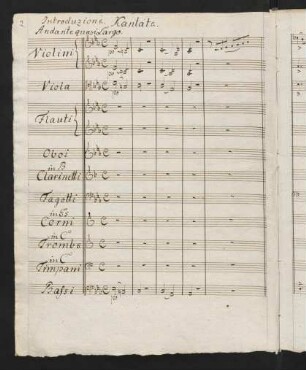 2 Introduzione. Kantate.
Andante quasi Largo
Violini
Viola
Flauti
Oboi
in B
Clarinetti
Fagotti
in Es
Corni
in C
Trombe
in C
Timpani
Bassi